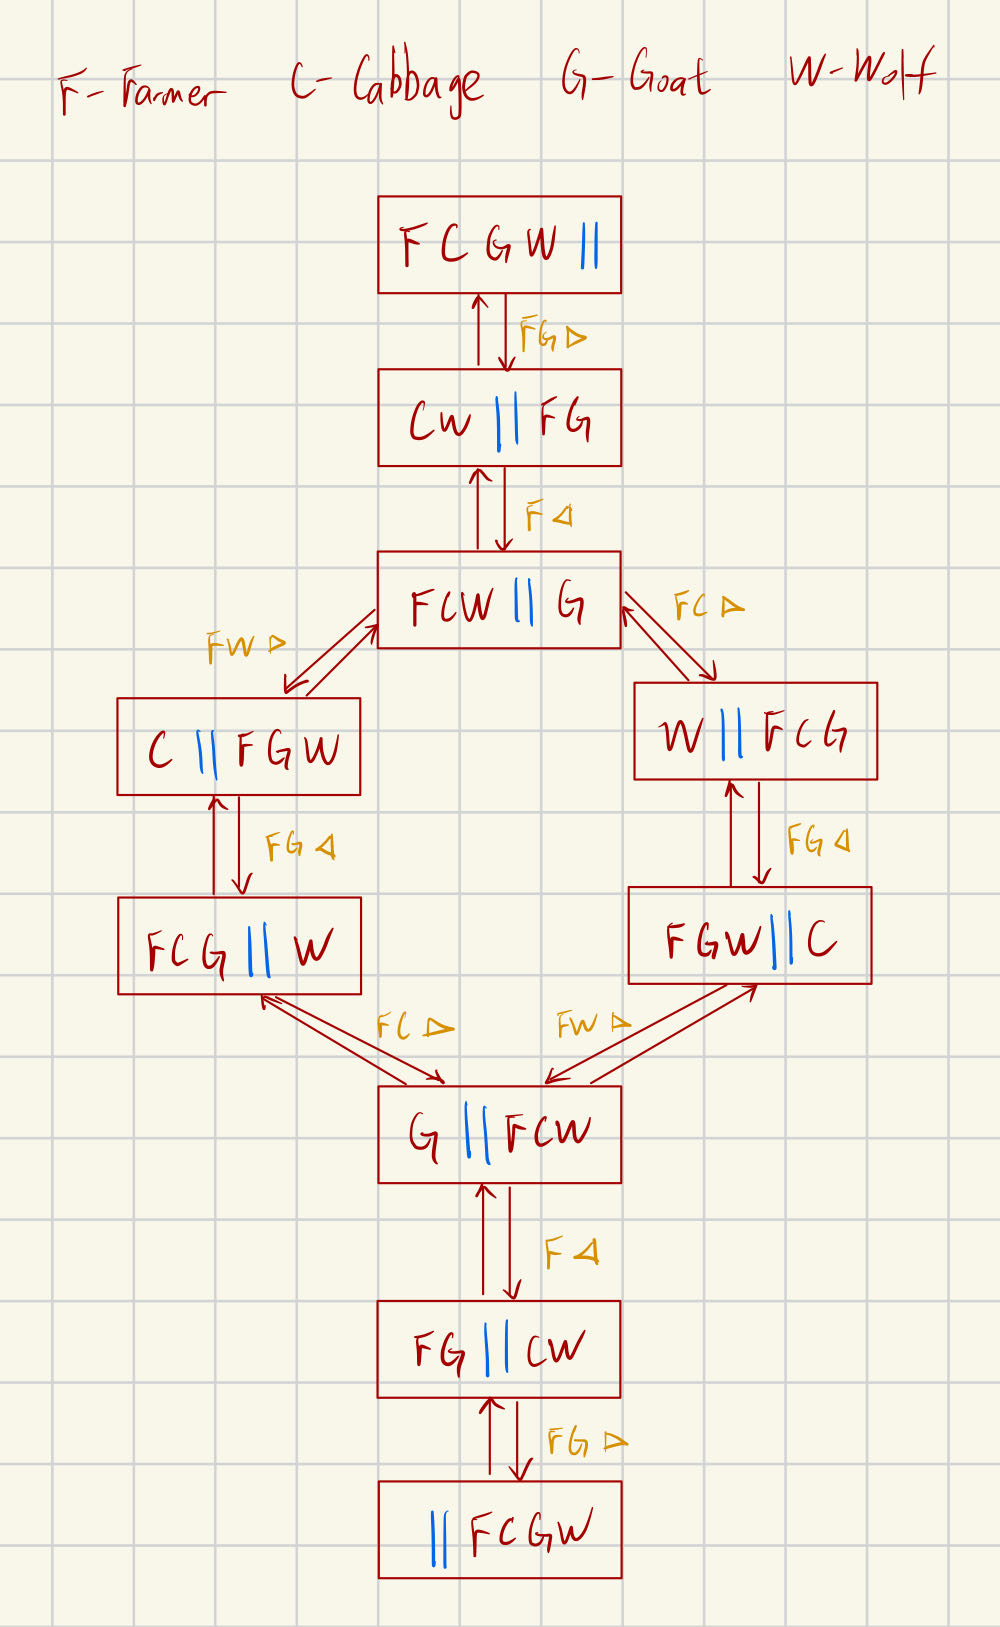 F - Farmer C - Cabbage G - Goat W - Wolf
F C G W ||
FG ▷
CW || FG
F ◁
FCW || G
FC ▷
FW ▷
W || FCG
C || FGW
FG ◁
FG ◁
FGW || C
FCG || W
FC ▷ FW ▷
G || FCW
F ◁
FG || CW
FG ▷
|| FCGW